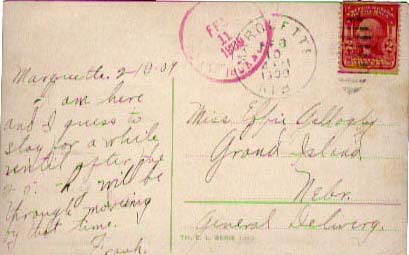 Marquette. 2-10-09
I am here
and I guess to
stay for a while
until after the
20. They will be
through moving
by that time.
Frank.
FEB
11
1909
FEB
10
1909
NEB
Miss Effie
Grand Island
Nebr.
General Delivery.